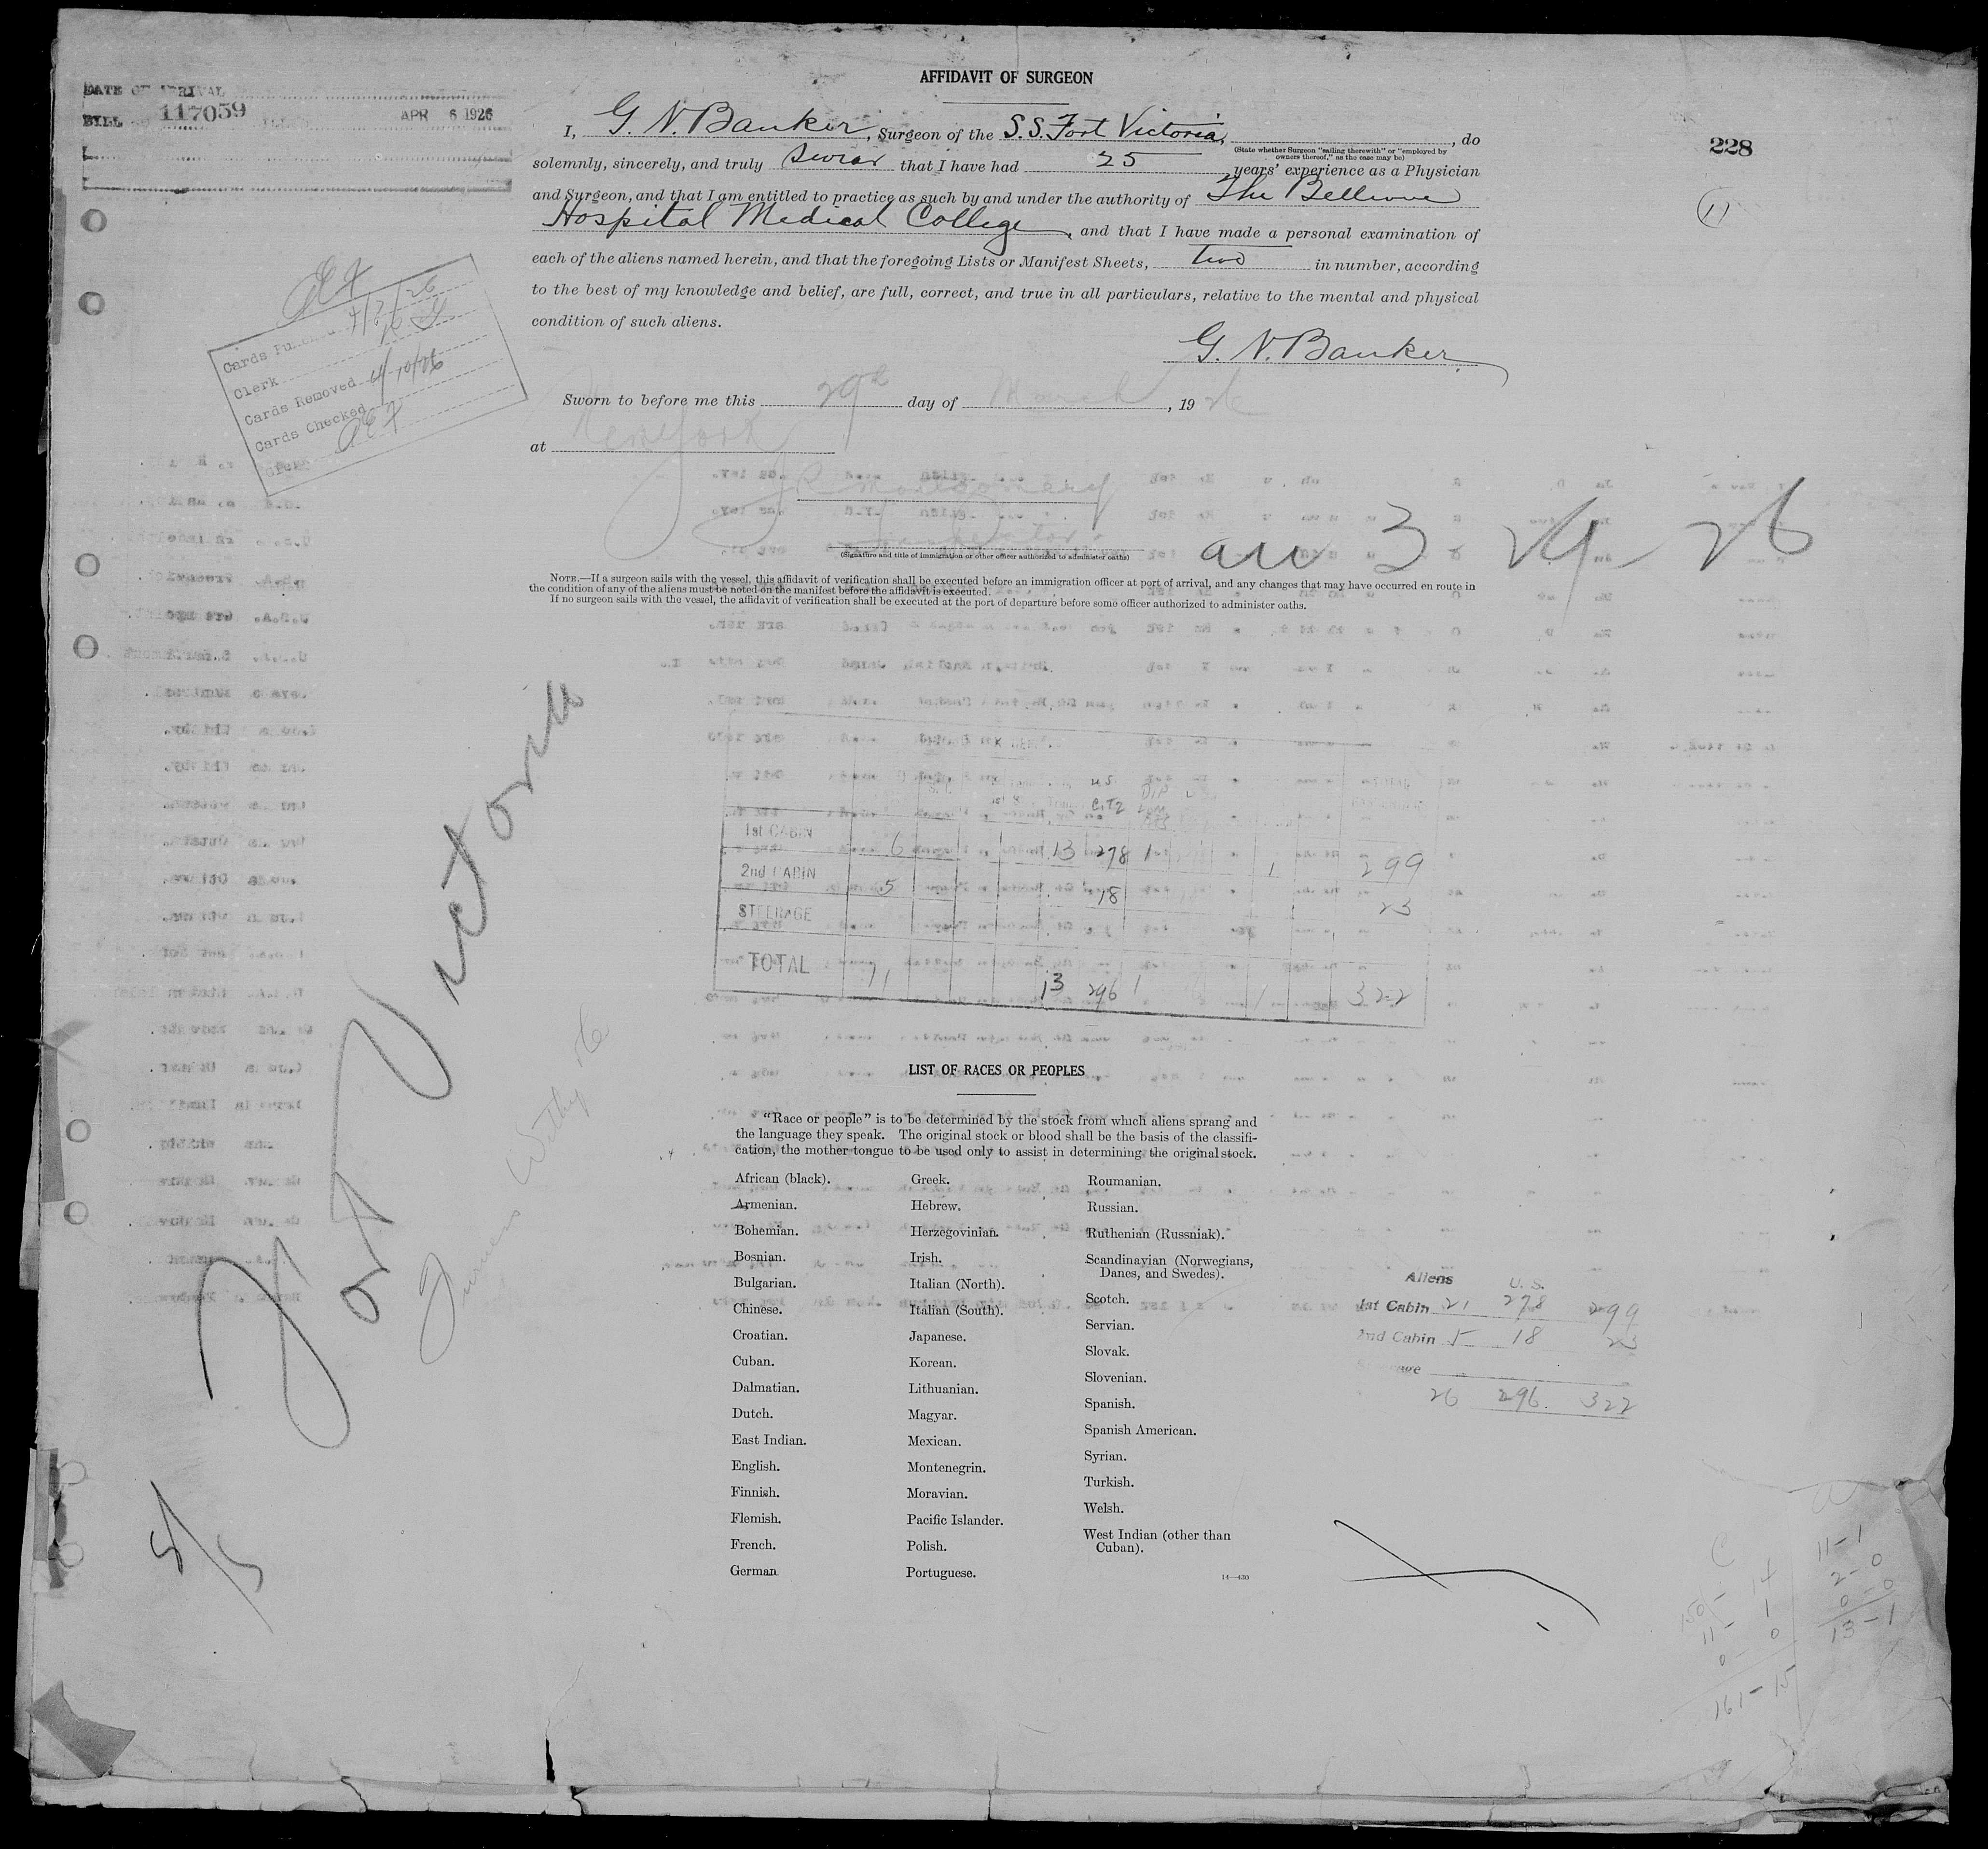 AFFIDAVIT OF SURGEON
DATE OF ARRIVAL
BILL 117059 APR 6 1926
228
11
I, G. N. Banker, Surgeon of the S.S. Fort Victoria, do
(State whether Surgeon "sailing therewith" or "employed by
owners thereof," as the case may be)
solemnly, sincerely, and truly swear that I have had 25 years' experience as a Physician
and Surgeon, and that I am entitled to practice as such by and under the authority of The Bellevue
Hospital Medical College, and that I have made a personal examination of
each of the aliens named herein, and that the foregoing Lists or Manifest Sheets, two in number, according
to the best of my knowledge and belief, are full, correct, and true in all particulars, relative to the mental and physical
condition of such aliens.
G. N. Banker
Cards
Clerk
Cards Removed 4/10/26
Cards Checked
Clerk
Sworn to before me this 29th day of March, 1926
at New York
J R Montgomery
Inspector
(Signature and title of immigration or other officer authorized to administer oaths)
arr 3 29 - 26
NOTE.—If a surgeon sails with the vessel, this affidavit of verification shall be executed before an immigration officer at port of arrival, and any changes that may have occurred en route in
the condition of any of the aliens must be noted on the manifest before the affidavit is executed.
If no surgeon sails with the vessel, the affidavit of verification shall be executed at the port of departure before some officer authorized to administer oaths.
Fort Victoria
Furness Withy
U.S. CITZ TOTAL
1st CABIN 6 13 278 1 1 299
2nd CABIN 5 18 23
STEERAGE
TOTAL 11 13 296 1 1 322
LIST OF RACES OR PEOPLES
"Race or people" is to be determined by the stock from which aliens sprang and
the language they speak. The original stock or blood shall be the basis of the classifi-
cation, the mother tongue to be used only to assist in determining the original stock.
African (black).
Armenian.
Bohemian.
Bosnian.
Bulgarian.
Chinese.
Croatian.
Cuban.
Dalmatian.
Dutch.
East Indian.
English.
Finnish.
Flemish.
French.
German
Greek.
Hebrew.
Herzegovinian.
Irish.
Italian (North).
Italian (South).
Japanese.
Korean.
Lithuanian.
Magyar.
Mexican.
Montenegrin.
Moravian.
Pacific Islander.
Polish.
Portuguese.
Roumanian.
Russian.
Ruthenian (Russniak).
Scandinavian (Norwegians,
Danes, and Swedes).
Scotch.
Servian.
Slovak.
Slovenian.
Spanish.
Spanish American.
Syrian.
Turkish.
Welsh.
West Indian (other than
Cuban).
14—430
Aliens U.S.
1st Cabin 21 278 299
2nd Cabin 5 18 23
26 296. 322
5/5
C
150 - 14
11 - 1
0 - 0
161 - 15
11 - 1
2 - 0
0 - 0
13 - 1